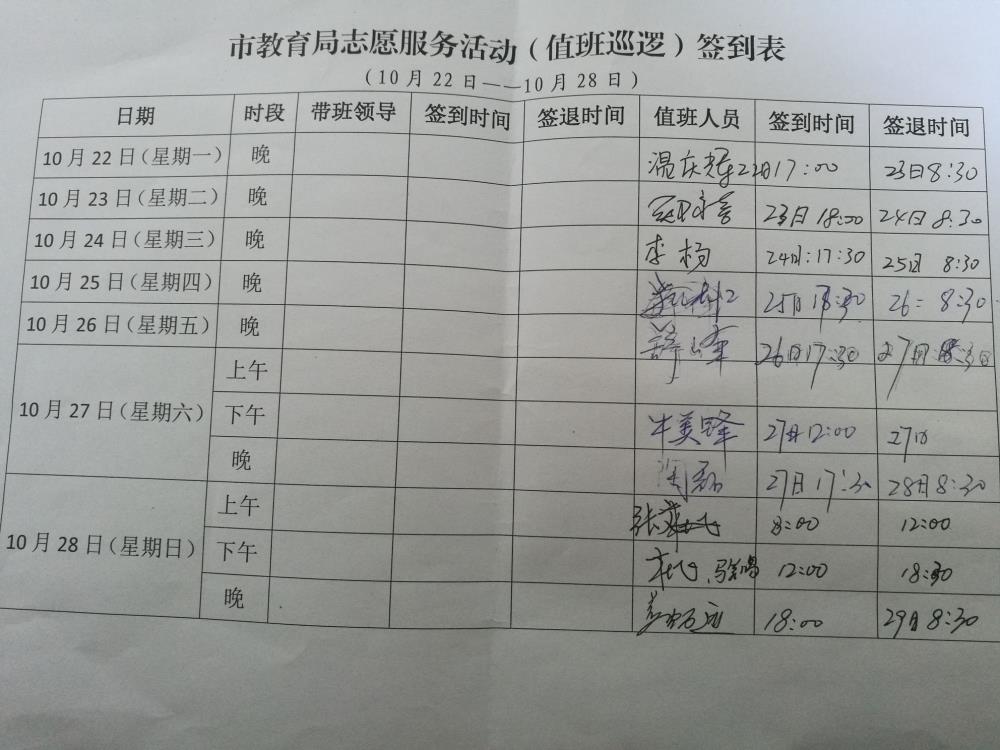 市教育局志愿服务活动（值班巡逻）签到表
（10月22日——10月28日）
日期 时段 带班领导 签到时间 签退时间 值班人员 签到时间 签退时间
10月22日（星期一） 晚 温庆 22日17:00 23日8:30
10月23日（星期二） 晚 23日 18:00 24日 8:30
10月24日（星期三） 晚 李杨 24日:17:30 25日 8:30
10月25日（星期四） 晚 25日 26: 8:30
10月26日（星期五） 晚 薛峰 26日17:30 27日
10月27日（星期六） 上午
下午 牛美锋 27日12:00 27日
晚 陶磊 27日 17:30 28日8:30
10月28日（星期日） 上午 张 8:00 12:00
下午 12:00 18:30
晚 18:00 29日8:30